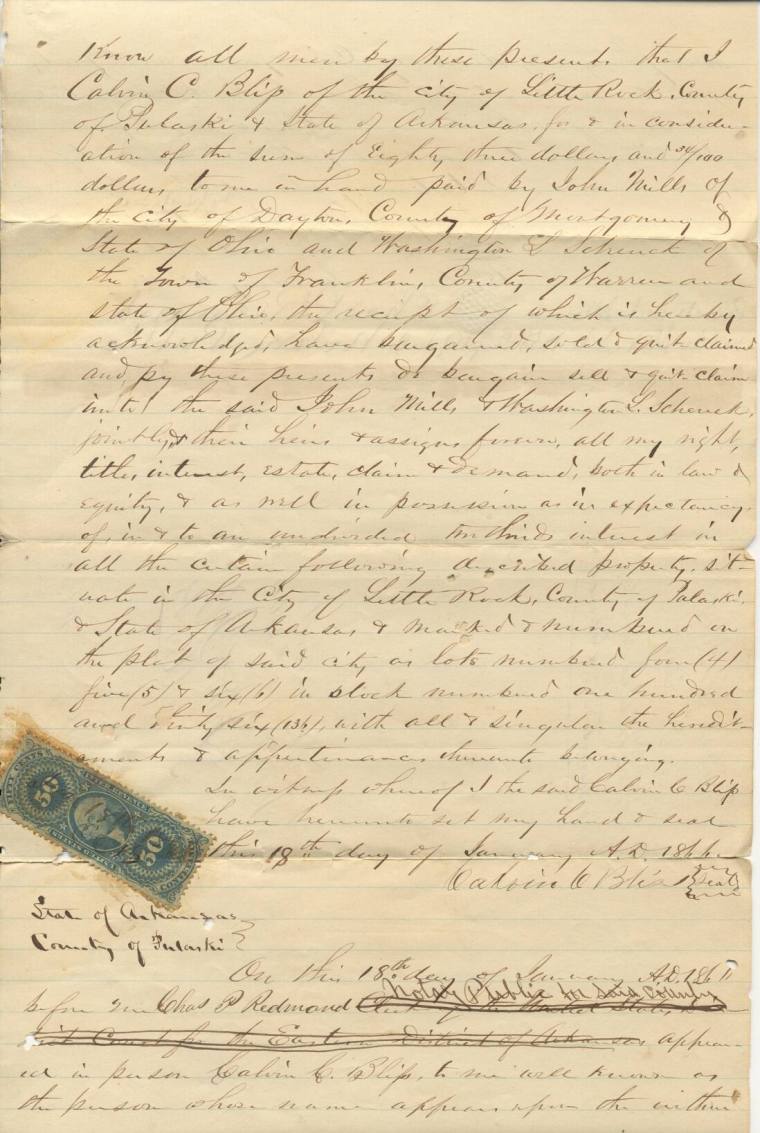 Know all men by these presents that I
Calvin C. Bliss of the city of Little Rock, County
of Pulaski & State of Arkansas, for & in consider-
ation of the sum of Eighty three dollars and 34/100
dollars to me in hand paid by John Mills of
the city of Dayton, County of Montgomery &
State of Ohio and Washington L Schenck of
the Town of Franklin, County of Warren and
state of Ohio, the receipt of which is hereby
acknowledged, have bargained, sold & quit claimed
and by these presents do bargain sell & quit claim
unto the said John Mills & Washington L. Schenck,
jointly, & their heirs & assigns forever, all my right,
title, interest, estate, claim & demand, both in law &
equity, & as well in possession as in expectancy
of, in & to an undivided two thirds interest in
all the certain following described property, sit-
uate in the City of Little Rock, County of Pulaski,
& State of Arkansas & marked & numbered on
the plat of said city as lots numbered four (4)
five (5) & six (6) in block numbered one hundred
and thirty six (136), with all & singular the heredit-
aments & appertinances thereunto belonging.
In witness whereof I the said Calvin C Bliss
have hereunto set my hand & seal
this 18th day of January A.D. 1866
Calvin C Bliss Seal
50
50
State of Arkansas
County of Pulaski
On this 18th day of January A.D. 1866
Notary Public for said County
before me Chas P Redmond Clerk of the United States
Court for the Eastern District of Arkansas appear-
ed in person Calvin C. Bliss, to me well known as
the person whose name appears upon the within